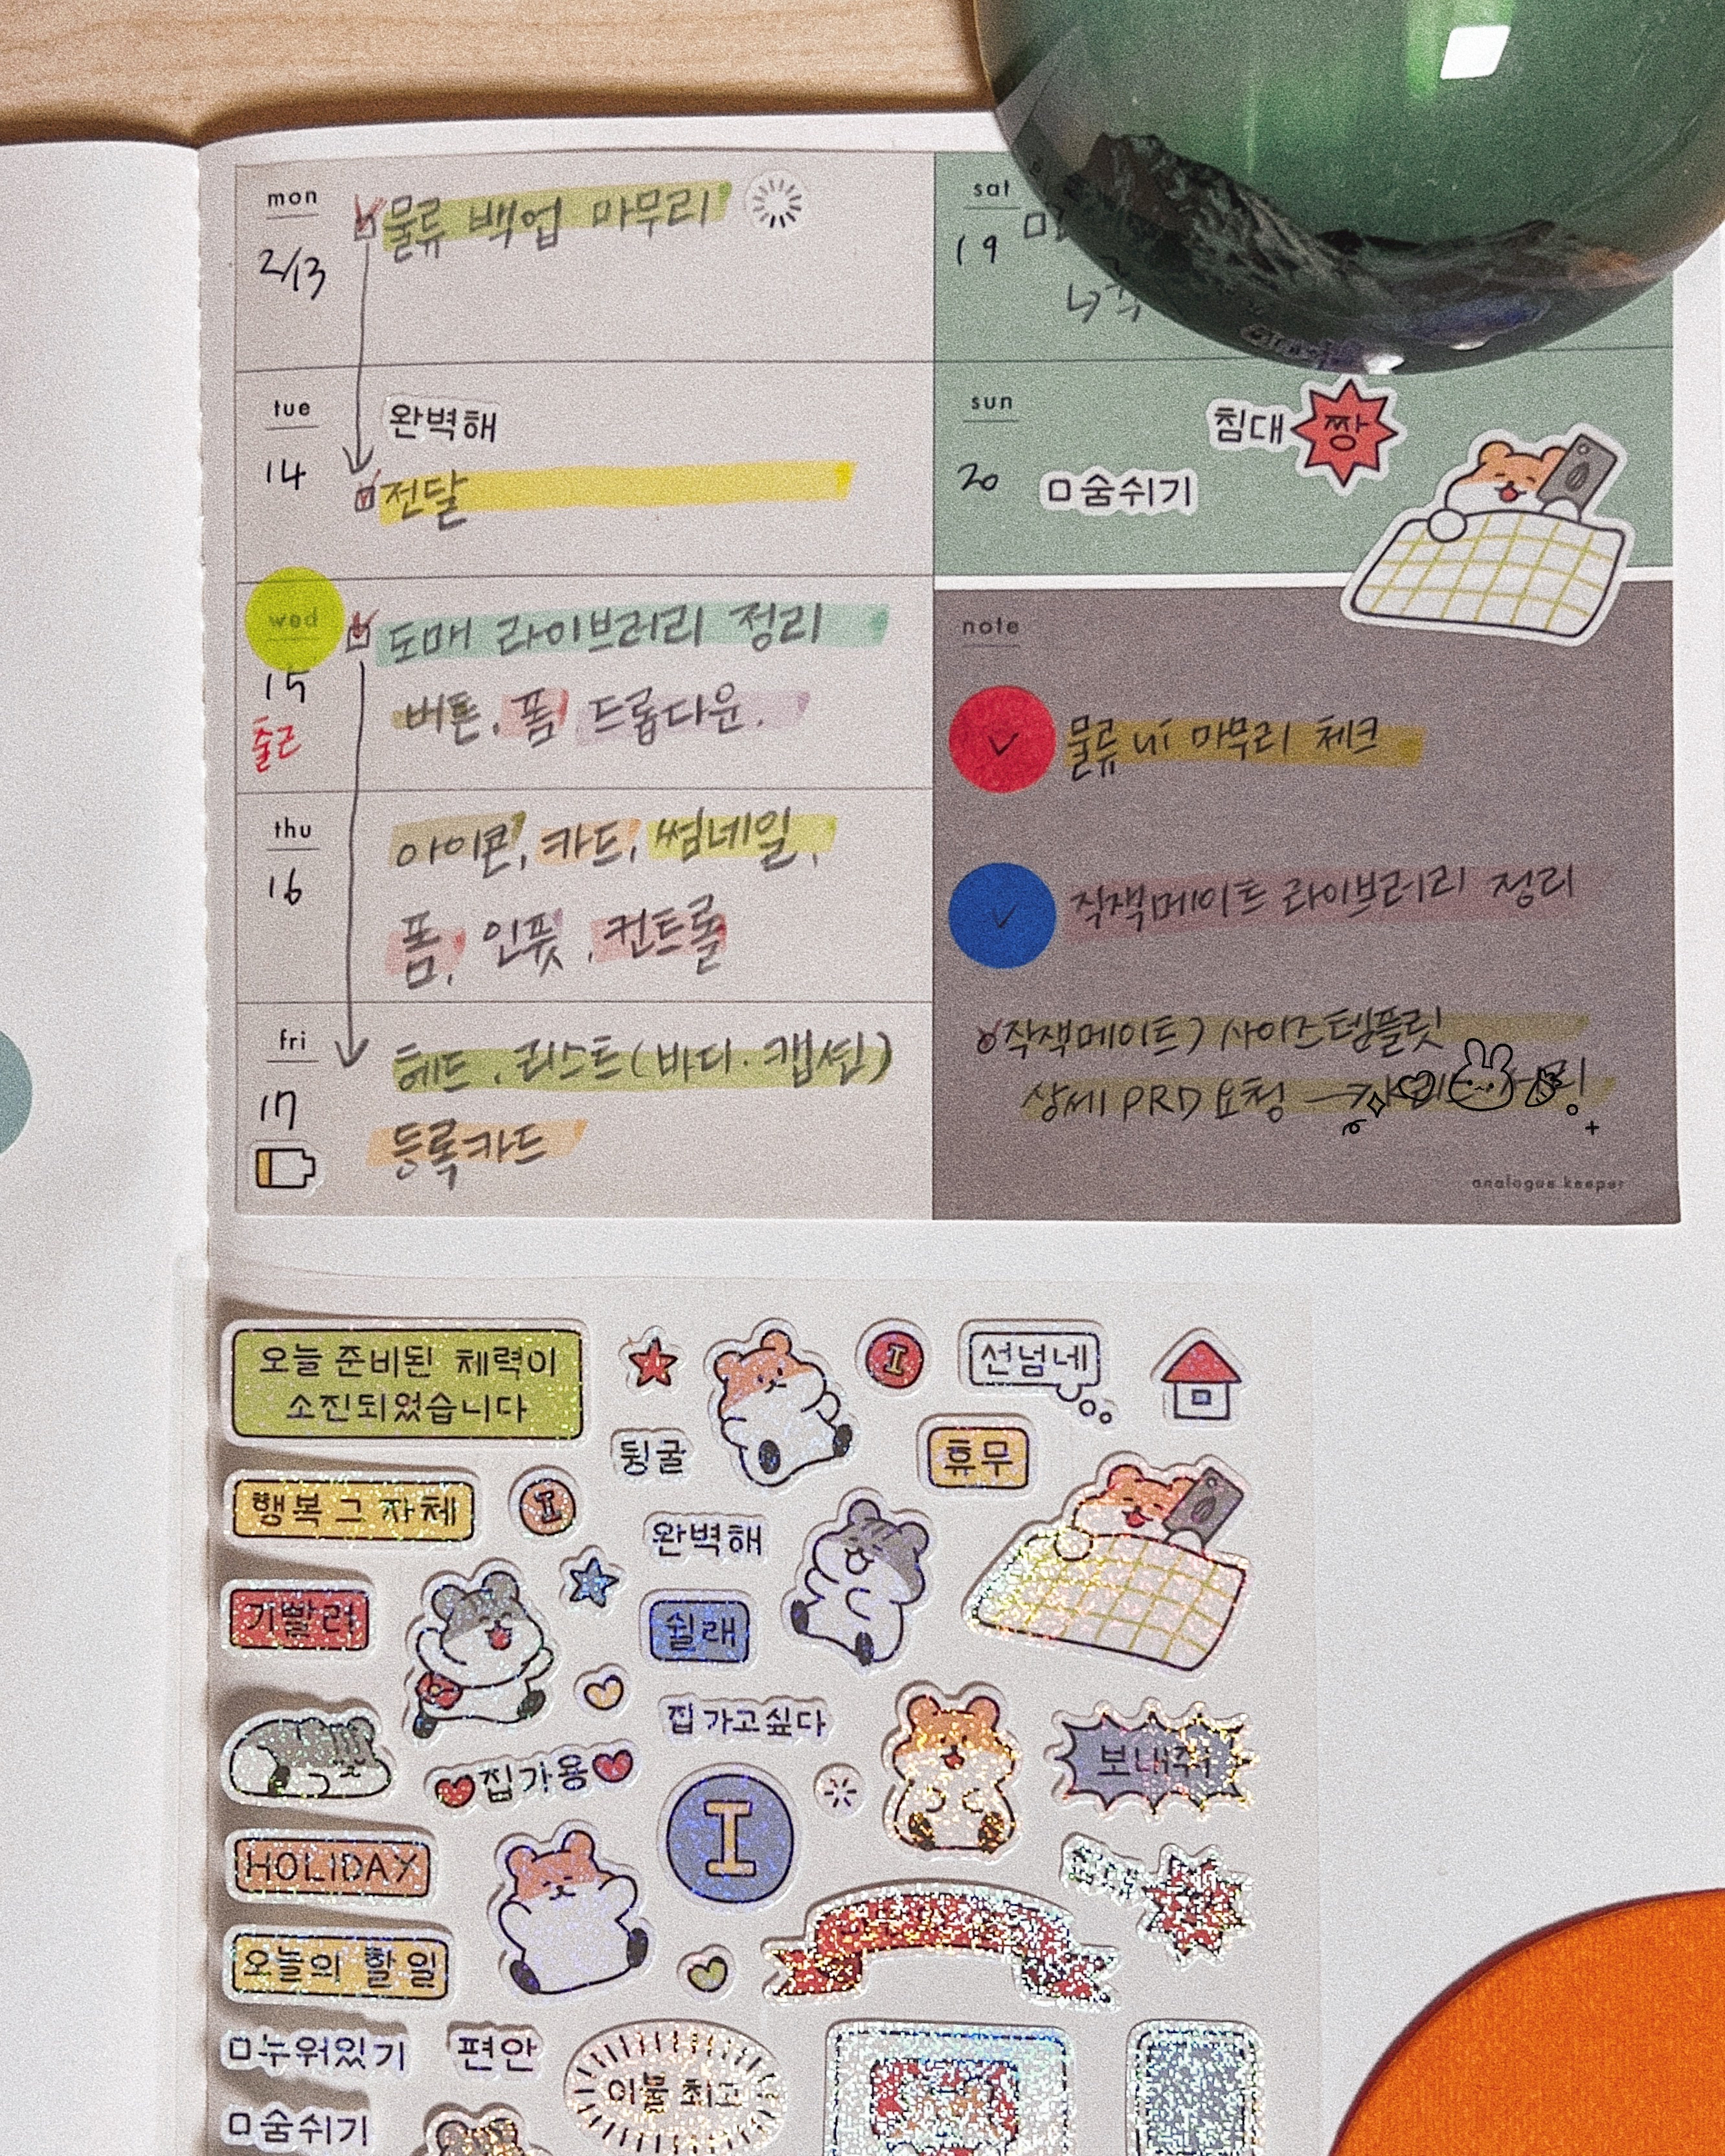 mon
2/13
물류 백업 마무리
tue
14
완벽해
전달
wed
15
출근
도매 라이브러리 정리
버튼, 폼, 드롭다운.
thu
16
아이콘, 카드, 썸네일,
폼, 인풋, 컨트롤
fri
17
헤드, 리스트(바디. 캡션)
등록카드
sat
19
sun
20
침대 짱
숨쉬기
note
물류 ui 마무리 체크
작잭메이트 라이브러리 정리
작잭메이트) 사이즈템플릿
상세 PRD 요청
analogue keeper
오늘 준비된 체력이
소진되었습니다
I
선넘네
뒹굴
휴무
행복 그 자체
I
완벽해
기빨려
쉴래
집 가고싶다
집가용
보내줘
I
HOLIDAY
오늘의 할 일
누워있기
편안
이불 최고
숨쉬기